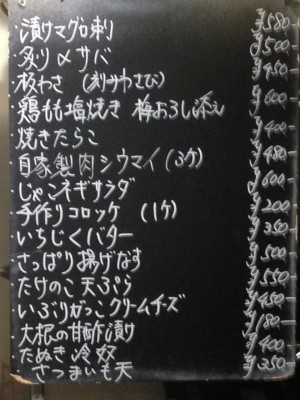 漬けマグロ刺 ¥580
炙り〆サバ ¥500
板わさ (刻みわさび) ¥450
鶏もも塩焼き 梅おろし添え ¥600
焼きたらこ ¥400
自家製肉シウマイ (3ケ) ¥480
じゃこネギサラダ ¥600
手作りコロッケ (1ケ) ¥200
いちじくバター ¥350
さっぱり揚げなす ¥500
たけのこ天ぷら ¥550
いぶりがっこクリームチーズ ¥450
大根の甘酢漬け ¥180
たぬき冷奴 ¥400
さつまいも天 ¥350